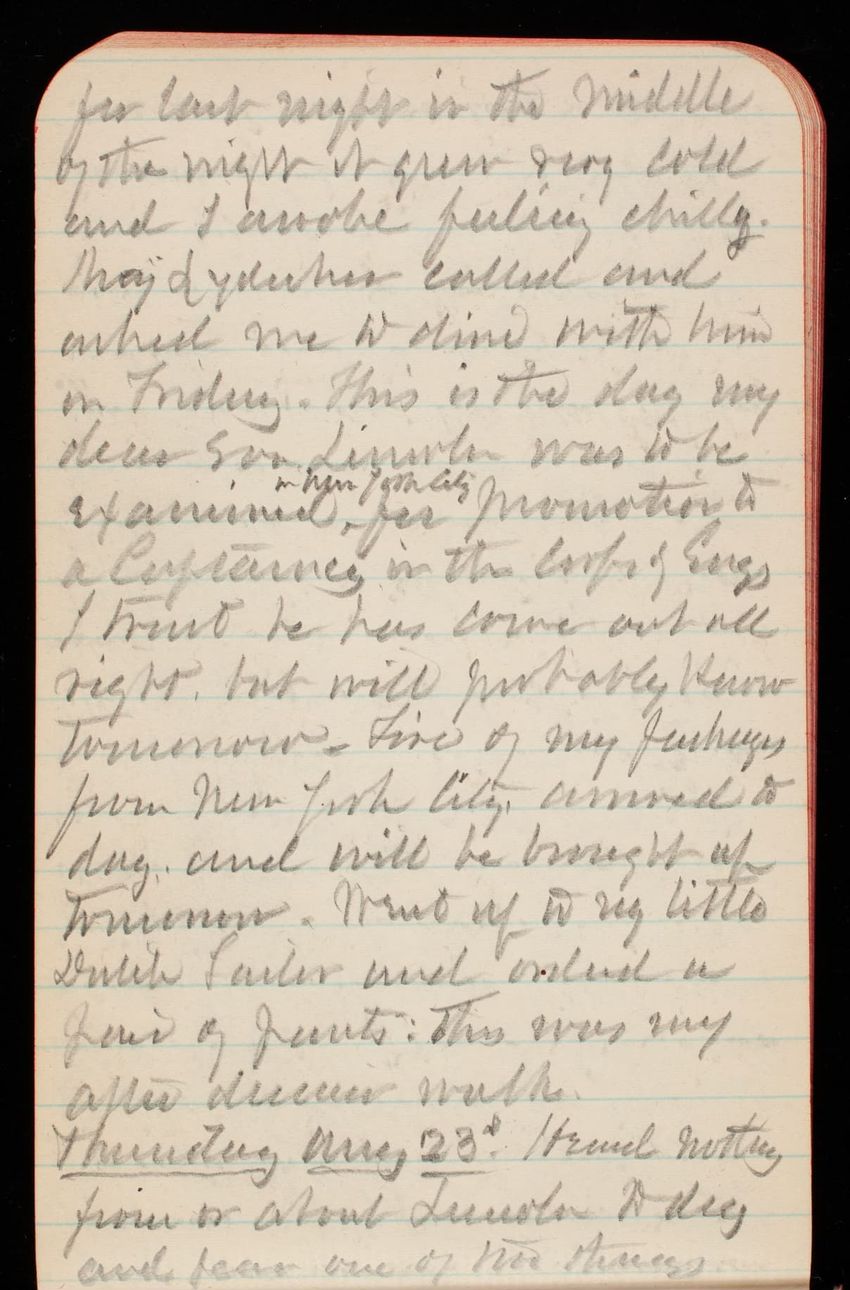 for last night in the middle
of the night it grew very cold
and I awoke feeling chilly.
Maj Lydecker called and
asked me to dine with him
on Friday. This is the day my
dear Son Lincoln was to be
in New York City
examined, for promotion to
a Captaincy in the Corps of Engs
I trust he has come out all
right. but will probably know
tomorrow. Five of my packages
from New York City, arrived to
day. and will be brought up
tomorrow. Went up to my little
Dutch Tailor and ordered a
pair of pants: This was my
after dinner walk.
Thursday Aug 23d. Heard nothing
from or about Lincoln to day
and fear one of two things